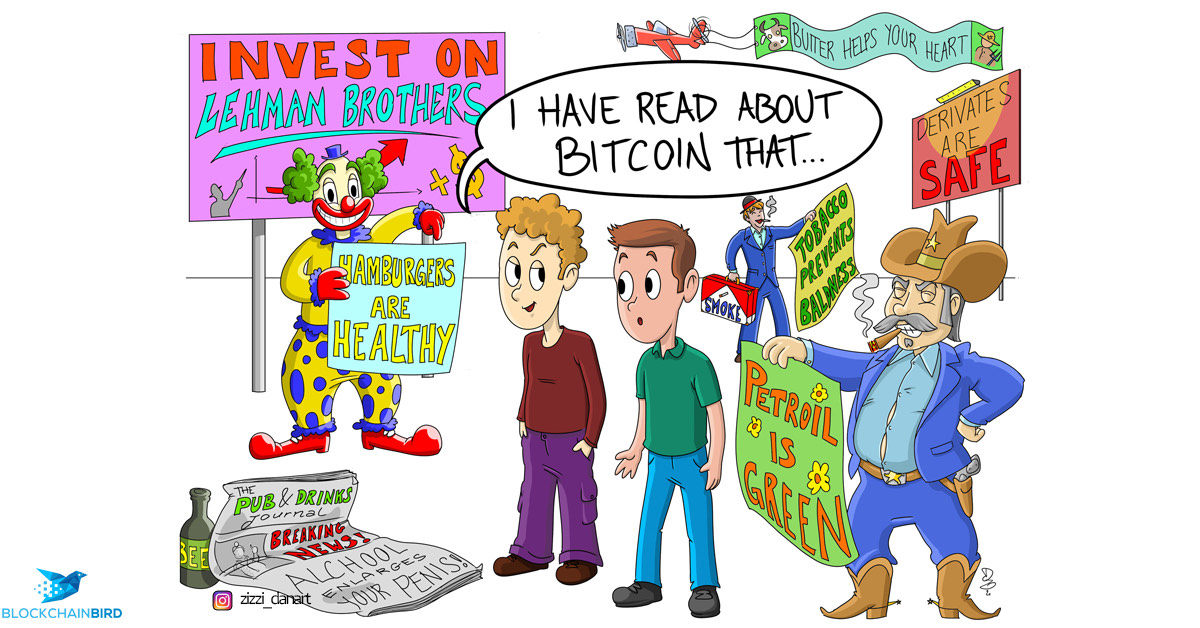 INVEST ON
LEHMAN BROTHERS
I HAVE READ ABOUT
BITCOIN THAT...
BUTTER HELPS YOUR HEART
DERIVATES
ARE
SAFE
HAMBURGERS
ARE
HEALTHY
TOBACCO
PREVENTS
BALDNESS
SMOKE
PETROIL
IS
GREEN
THE
PUB & DRINKS
Journal
BREAKING
NEWS!
ALCHOOL
ENLARGES
YOUR PENIS!
BEE
zizzi_danart
BLOCKCHAINBIRD